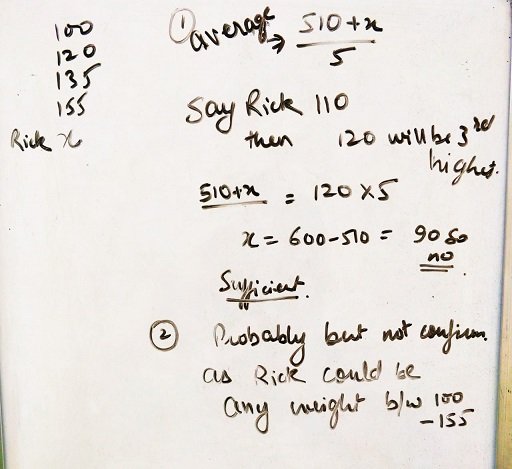 100
120
135
155
Rick x
① average → 510+x
5
Say Rick 110
then 120 will be 3rd
highest.
510+x = 120 x 5
x = 600-510 = 90 so
no
Sufficient.
② Probably but not confirm.
as Rick could be
any weight b/w 100
-155